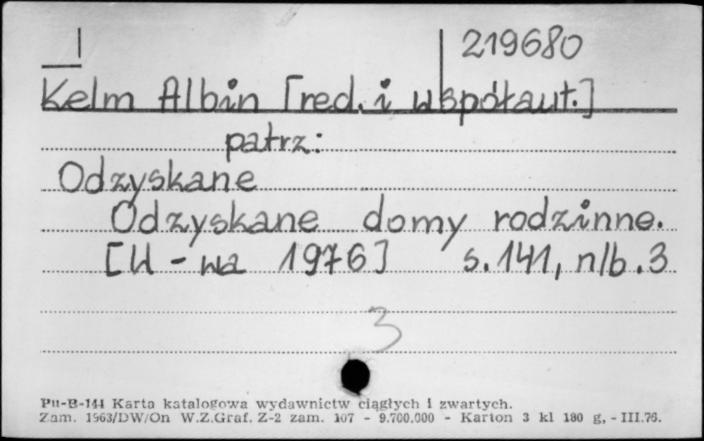 219680
Kelm Albin [red. i współaut.]
patrz:
Odzyskane
Odzyskane domy rodzinne.
[W-wa 1976] s. 141, nlb. 3
3
Pu-B-144 Karta katalogowa wydawnictw ciągłych i zwartych.
Zam. 1963/DW/On W.Z.Graf. Z-2 zam. 107 - 9.700.000 - Karton 3 kl 180 g, - III.76.